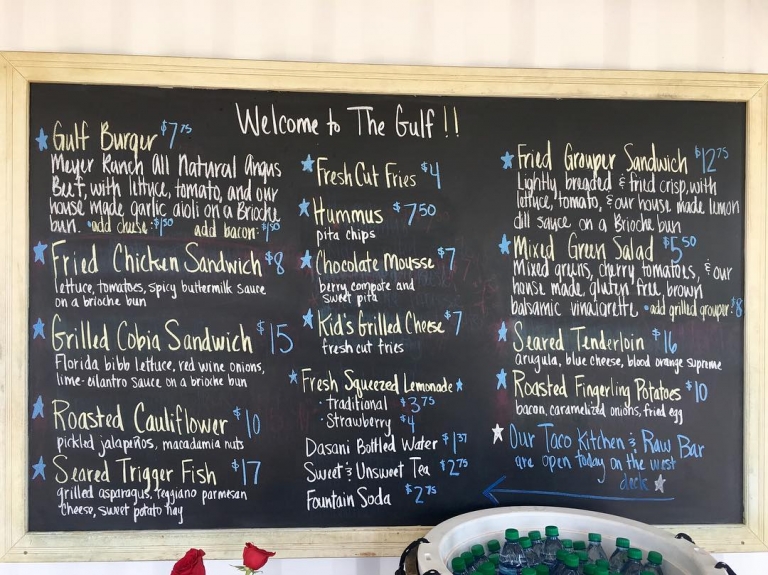 Welcome to The Gulf!!
Gulf Burger $7.75
Meyer Ranch All Natural Angus
Beef, with lettuce, tomato, and our
house made garlic aioli on a Brioche
bun. •add cheese: $1.50 add bacon: $1.50
Fried Chicken Sandwich $8
lettuce, tomatoes, spicy buttermilk sauce
on a brioche bun
Grilled Cobia Sandwich $15
Florida bibb lettuce, red wine onions,
lime-cilantro sauce on a brioche bun
Roasted Cauliflower $10
pickled jalapeños, macadamia nuts
Seared Trigger Fish $17
grilled asparagus, reggiano parmesan
cheese, sweet potato hay
Fresh Cut Fries $4
Hummus $7.50
pita chips
Chocolate Mousse $7
berry compote and
sweet pita
Kid's Grilled Cheese $7
fresh cut fries
Fresh Squeezed Lemonade
• traditional $3.75
• Strawberry $4
Dasani Bottled Water $1.37
Sweet & Unsweet Tea $2.75
Fountain Soda $2.75
Fried Grouper Sandwich $12.75
Lightly breaded & fried crisp, with
lettuce, tomato, & our house made lemon
dill sauce on a Brioche bun
Mixed Green Salad $5.50
Mixed greens, cherry tomatoes, & our
house made, gluten free, brown
balsamic vinaigrette •add grilled grouper: $8
Seared Tenderloin $16
arugula, blue cheese, blood orange supreme
Roasted Fingerling Potatoes $10
bacon, caramelized onions, fried egg
Our Taco Kitchen & Raw Bar
are open today on the west
deck